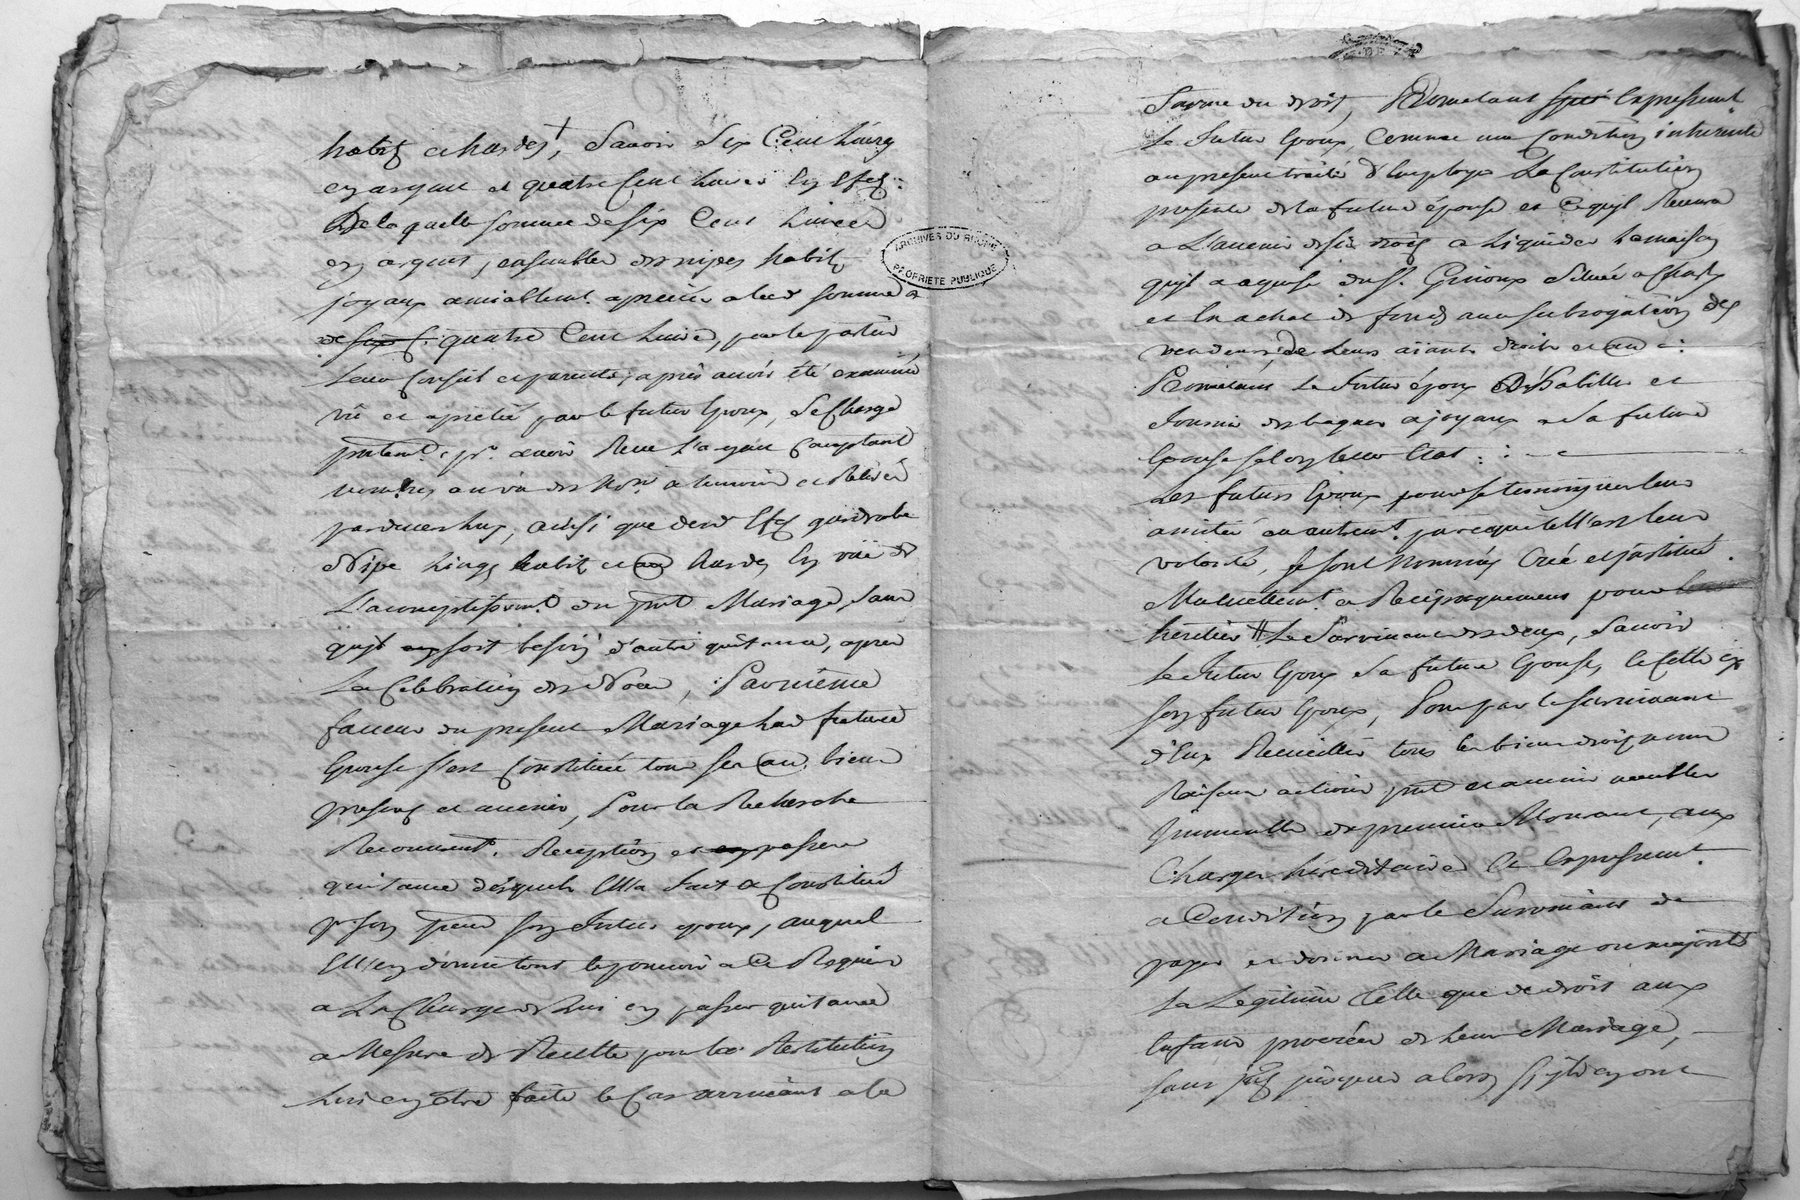 habits et hardes, Savoir Six Cent Livres
en argent et quatre Cent Livres en Effets
De laquelle somme de six Cent Livres
en argent, ensemble des nipes habits
joyaux amiablement apreciés a lad somme
de quatre Cent Livres, par le
Leur Conseil et parents, après avoir été examiné
vû et aprécié par le futur Epoux, Se Charge
avoir Reçu L'argent Comptant
nombrés au vû des Nores et témoins et Retiré
pardevers luy, ainsi que desd Effets garderobe
Nipes Linges habits et Hardes En vüe de
L'accomplissement du prnt Mariage, sans
quil en soit besoin d'autre quitance, apres
La Celebration des Noces, Par même
faveur du present Mariage Lad future
Epouse s'est Constituée tous ses biens
presens et avenir, Pour la Recherche
Recouvrement. Reception et passer
quitance desquels Elle a fait et Constitué
pr son son futur epoux, auquel
Elle en donne tout le pouvoir a Ce Requis
a La Charge de Lui en passer quitance
a Mesure de Recette pour la Restitution
Lui en etre faite le Cas arrivant a la
ARCHIVES DU RHONE
PROPRIETE PUBLIQUE
forme du droit, Promettant Expressement
Le futur Epoux, Comme une Condition inherente
au present traité D'Employer La Constitution
presente de la future épouse et Ce quil Recevra
a L'avenir de ses droits a Liquider La maison
quil a aquise du Sr. Située a
et En achat de fonds avec subrogation des
vendeurs, de Leurs aiants droits
Promettant Le futur époux D'habiller et
Fournir des bagues et joyaux a Sa future
Epouse selon leur Etat
Les futurs Epoux pour se temoigner leur
amitié autrement. parce que telle est leur
volonté, se sont Nommés Créé et institué
Mutuellement. et Reciproquement pour
heritier Le Survivant des deux, Savoir
Le futur Epoux Sa future Epouse, et Celle cy
son futur Epoux, Pour par le survivant
d'Eux Recueillir tous les biens droits noms
Raisons actions prnt et avenir meubles
Immeubles du premier Mourant, aux
Charges hereditaires Et Expressement.
a Condition par le Survivant de
payer et donner a Mariage ou majorité
La Legitime telle que de droit aux
Enfans procréés de Leur Mariage,
sans jusques alors